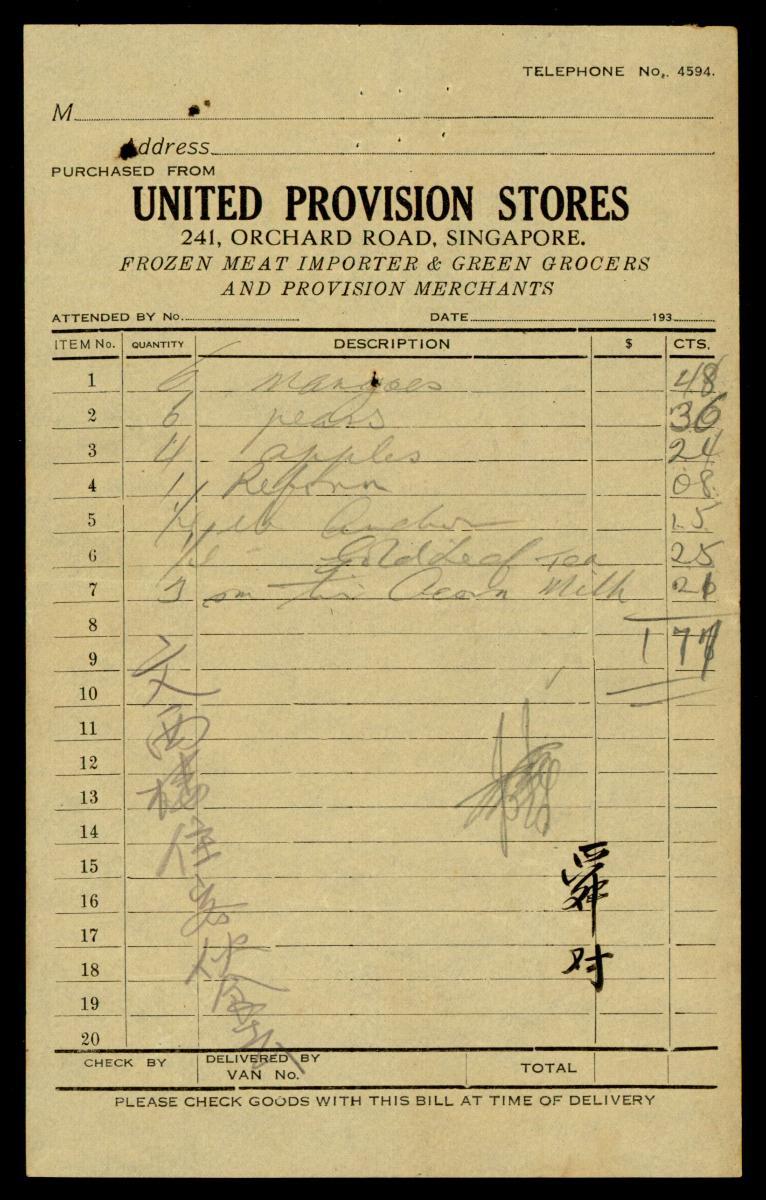 TELEPHONE No. 4594.
M
Address
PURCHASED FROM
UNITED PROVISION STORES
241, ORCHARD ROAD, SINGAPORE.
FROZEN MEAT IMPORTER & GREEN GROCERS
AND PROVISION MERCHANTS
ATTENDED BY No. DATE 193
ITEM No. QUANTITY DESCRIPTION $ CTS.
1 6 mangoes 48
2 6 pears 36
3 4 apples 24
4 1 08
5 lb Anchor 15
6 Gold Leaf Tea 25
7 3 sm tin Acorn Milk 21
8
9 1 77
10
11
12
13
14
15
16
17
18
19
20
舜对
CHECK BY DELIVERED BY VAN No. TOTAL
PLEASE CHECK GOODS WITH THIS BILL AT TIME OF DELIVERY